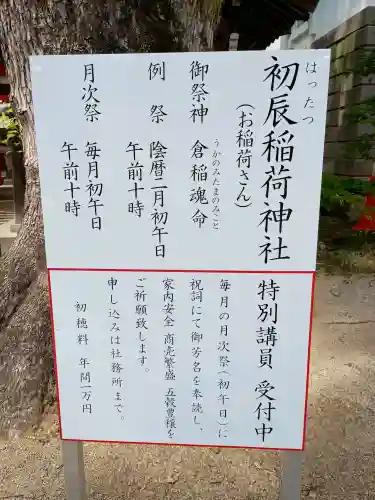 初辰稲荷神社
はったつ
（お稲荷さん）
御祭神　倉稲魂命
うかのみたまのみこと
例　祭　陰暦二月初午日
午前十時
月次祭　毎月初午日
午前十時
特別講員　受付中
毎月の月次祭（初午日）に
祝詞にて御芳名を奉読し、
家内安全　商売繁盛　五穀豊穣を
ご祈願致します。
申し込みは社務所まで。
初穂料　年間一万円